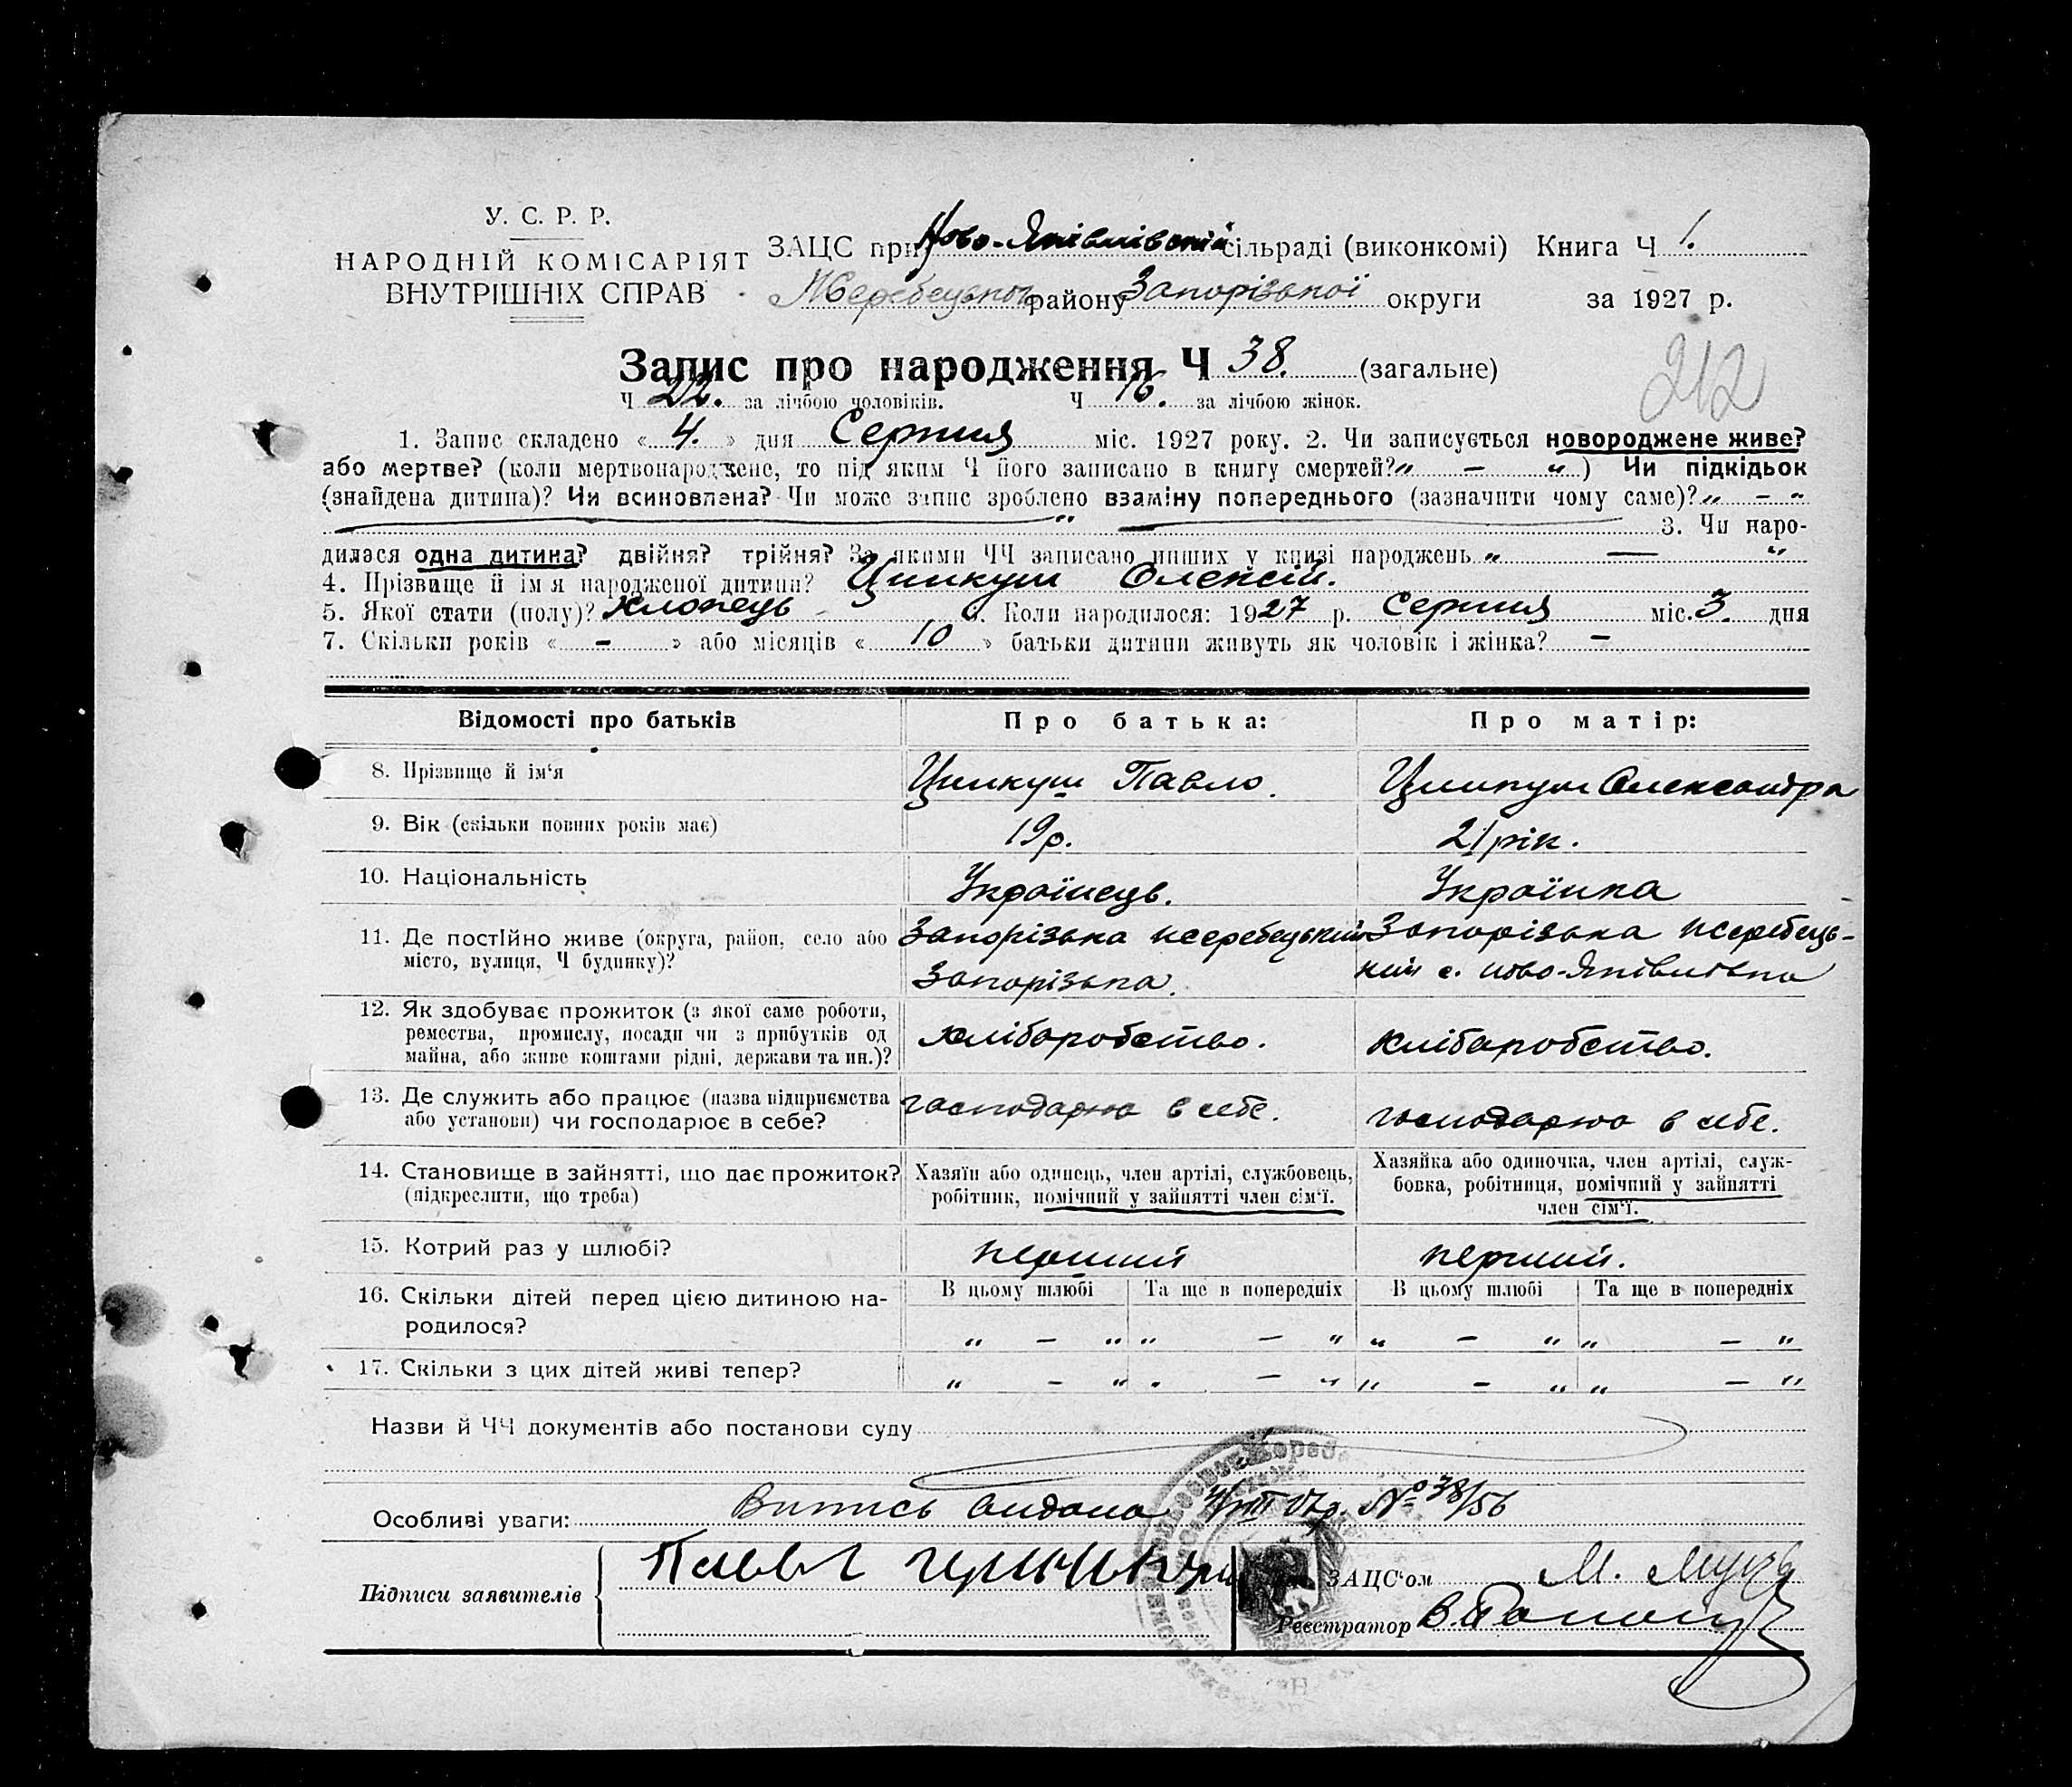 У. С. Р. Р.
НАРОДНІЙ КОМІСАРІЯТ
ВНУТРІШНІХ СПРАВ
ЗАЦС при Ново-Яківлівській сільраді (виконкомі) Книга Ч 1.
Жеребецького району Запорізької округи за 1927 р.
Запис про народження Ч 38. (загальне)
212
Ч 22. за лічбою чоловіків. Ч 16. за лічбою жінок.
1. Запис складено « 4. » дня Серпня міс. 1927 року. 2. Чи записується новороджене живе?
або мертве? (коли мертвонароджене, то під яким Ч його записано в книгу смертей? „ — “ ) Чи підкідьок
(знайдена дитина)? Чи всиновлена? Чи може запис зроблено взаміну попереднього (зазначити чому саме)? „ — “
3. Чи наро-
дилася одна дитина? двійня? трійня? За якими ЧЧ записано инших у книзі народжень „ — “
4. Прізвище й ім'я народженої дитини? Цимкуш Олексій.
5. Якої стати (полу)? хлопець 6. Коли народилося: 1927 р. Серпня міс. 3. дня
7. Скільки років « — » або місяців « 10 » батьки дитини живуть як чоловік і жінка? —
Відомості про батьків Про батька: Про матір:
8. Прізвище й ім'я Цимкуш Павло. Цимкуш Олександра
9. Вік (скільки повних років має) 19 р. 21 рік.
10. Національність Українець. Українка
11. Де постійно живе (округа, район, село або місто, вулиця, Ч будинку)?
Запорізька жеребецький
Запорізька.
Запорізька жеребець-
кий с. Ново-Яківлівка
12. Як здобуває прожиток (з якої саме роботи, ремества, промислу, посади чи з прибутків од майна, або живе коштами рідні, держави та ин.)?
хліборобство. хліборобство.
13. Де служить або працює (назва підприємства або установи) чи господарює в себе?
господарює в себе. господарює в себе.
14. Становище в зайнятті, що дає прожиток? (підкреслити, що треба)
Хазяїн або одинець, член артілі, службовець,
робітник, помічний у зайнятті член сім'ї.
Хазяйка або одиночка, член артілі, служ-
бовка, робітниця, помічний у зайнятті
член сім'ї.
15. Котрий раз у шлюбі? перший перший.
16. Скільки дітей перед цією дитиною на-
родилося?
В цьому шлюбі Та ще в попередніх В цьому шлюбі Та ще в попередніх
„ — “ „ — “ „ — “ „ — “
17. Скільки з цих дітей живі тепер? „ — “ „ — “ „ — “ „ — “
Назви й ЧЧ документів або постанови суду
Особливі уваги: Витись видана 4/VIII 27р. № 38/56
Підписи заявителів
ЗАЦС'ом
Реєстратор